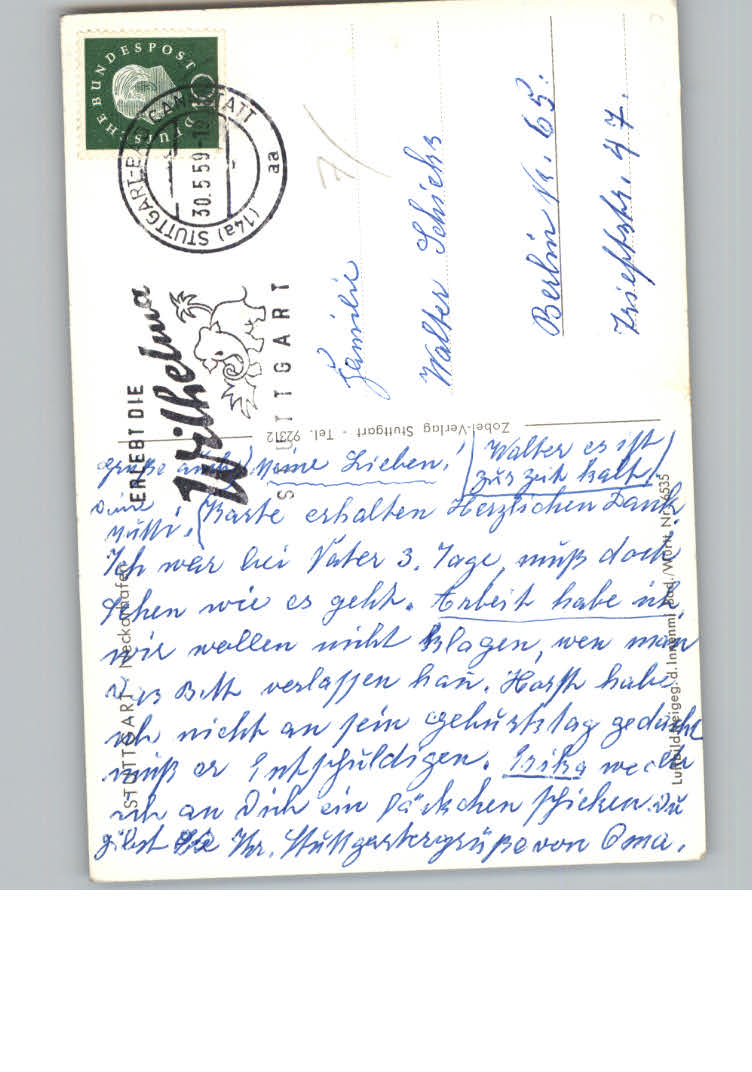 DEUTSCHE BUNDESPOST
(14a) STUTTGART-BAD CANNSTATT
30.5.59-19
aa
ERLEBT DIE
Wilhelma
STUTTGART
Familie
Walter
Berlin N. 65.
47.
Zobel-Verlag Stuttgart - Tel. 92312
STUTTGART Neckarhafen
Meine Lieben!
(Walter es ist
zur zeit kalt)
Grüße auch
Deine
Mutti.
Karte erhalten Herzlichen Dank
Ich war bei Vater 3. Tage, muß doch
Sehen wie es geht. Arbeit habe ich,
wir wollen nicht klagen, wen man
das Bett verlassen kan. Horst habe
ich nicht an sein geburtstag gedacht
muß er Entschuldigen. Erika werde
ich an Dich ein Päckchen schicken. Du
gibst Ihr. Stuttgartergrüße von Oma.